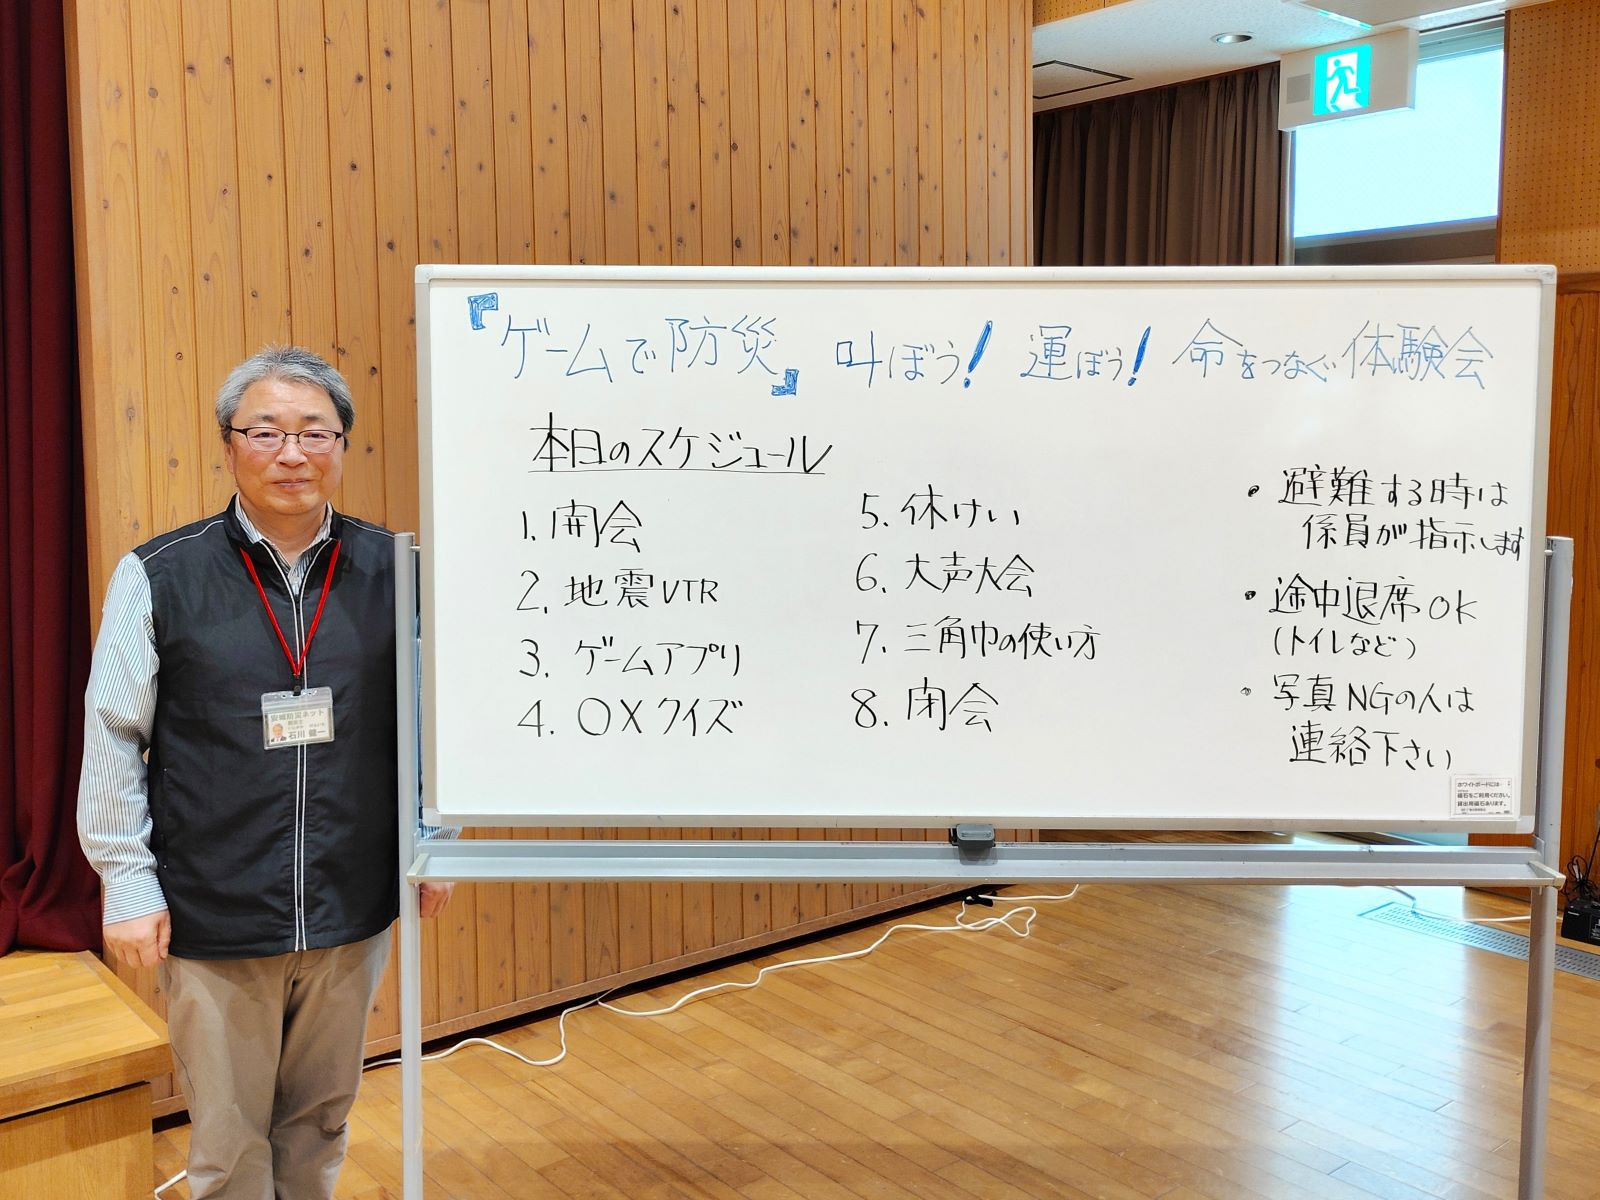 『ゲームで防災』 叫ぼう! 運ぼう! 命をつなぐ体験会
本日のスケジュール
1. 開会
2. 地震VTR
3. ゲームアプリ
4. OXクイズ
5. 休けい
6. 大声大会
7. 三角巾の使い方
8. 閉会
・避難する時は
係員が指示します
・途中退席OK
(トイレなど)
・写真NGの人は
連絡下さい
安城防災ネット
石川 健一
ホワイトボードには
磁石をご利用ください。
貸出用磁石あります。